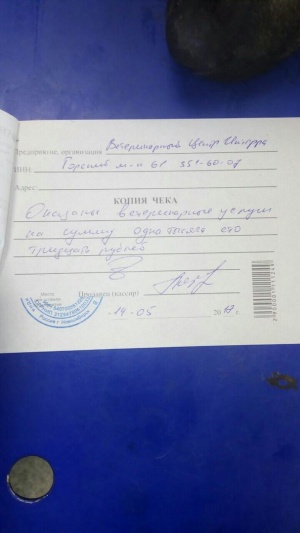 Предприятие, организация Ветеринарный центр
ИНН Горский м-н 61 351-60-07
Адрес:
КОПИЯ ЧЕКА
Оказаны ветеринарные услуги
на сумму одна тысяча сто
тридцать рублей
Продавец (кассир)
14.05 2017.